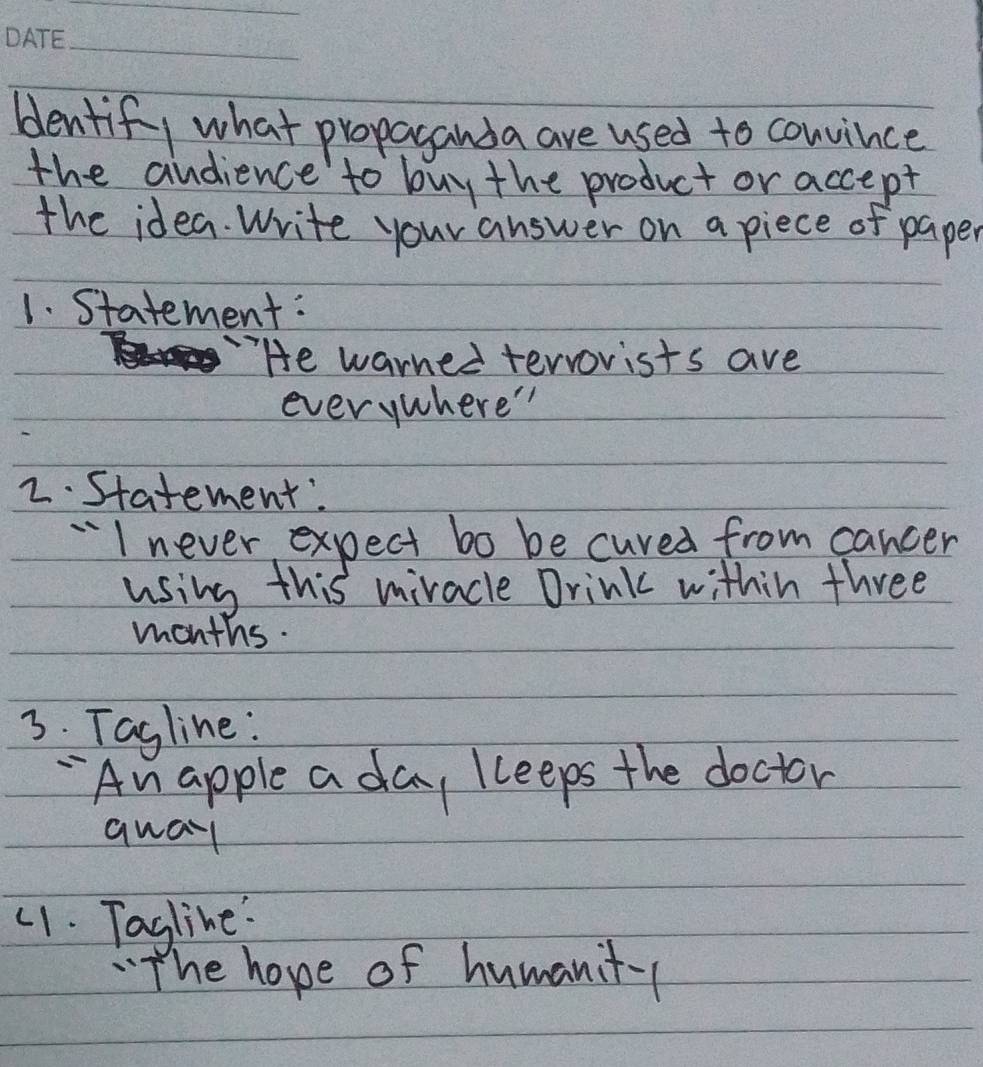 DATE
Identify what propaganda are used to convince
the audience to buy the product or accept
the idea. Write your answer on a piece of paper
1. Statement:
"He warned terrorists are
everywhere"
2. Statement:
"I never expect bo be cured from cancer
using this miracle Drink within three
months.
3. Tagline:
"An apple a day keeps the doctor
away
4. Tagline:
"The hope of humanity